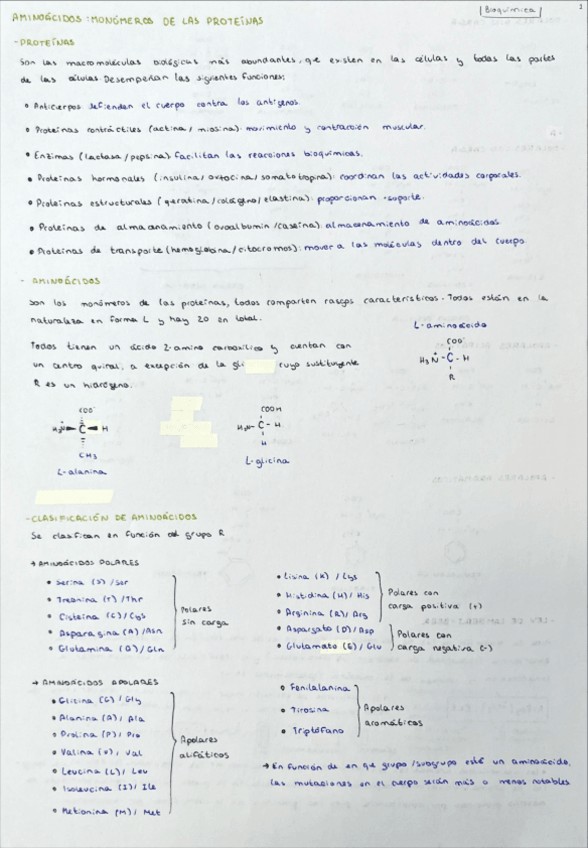 Bioquímica
1
AMINOÁCIDOS: MONÓMEROS DE LAS PROTEÍNAS
- PROTEÍNAS
Son las macromoléculas biológicas más abundantes, que existen en las células y todas las partes
de las células. Desempeñan las siguientes funciones:
• Anticuerpos defienden el cuerpo contra los antígenos
• Proteínas contráctiles (actina/miosina): movimiento y contracción muscular.
• Enzimas (lactasa/pepsina) facilitan las reacciones bioquímicas.
• Proteínas hormonales (insulina/oxtocina/somatotropina): coordinan las actividades corporales.
• Proteínas estructurales (queratina/colágeno/elastina): proporcionan soporte.
• Proteínas de almacenamiento (ovoalbumin/caseína): almacenamiento de aminoácidos
• Proteínas de transporte (hemoglobina/citocromos): mover a las moléculas dentro del cuerpo
- AMINOÁCIDOS
Son los monómeros de las proteínas, todos comparten rasgos característicos. Todos están en la
naturaleza en forma L y hay 20 en total.
L-aminoácido
Todos tienen un ácido 2-amino carboxílico y cuentan con
un centro quiral, a excepción de la gli cuyo sustituyente
R es un hidrógeno.
COO⁻
H₃N⁺ - C - H
R
COO⁻
H₃N⁺ C H
CH₃
L-alanina
COOH
H₃N - C - H
H
L-glicina
- CLASIFICACIÓN DE AMINOÁCIDOS
Se clasifican en función del grupo R
→ AMINOÁCIDOS POLARES
• Serina (S) /Ser
• Treonina (T) /Thr
• Cisteína (C) /Cys
• Asparagina (A) /Asn
• Glutamina (Q) /Gln
Polares
sin carga
• Lisina (K) / Lys
• Histidina (H) / His
• Arginina (R)/ Arg
Polares con
carga positiva (+)
• Aspargato (D) / Asp
• Glutamato (E)/ Glu
Polares con
carga negativa (-)
→ AMINOÁCIDOS APOLARES
• Glicina (G) / Gly
• Alanina (A) / Ala
• Prolina (P) / Pro
• Valina (V) / Val
• Leucina (L) / Leu
• Isoleucina (I) / Ile
• Metionina (M) / Met
Apolares
alifáticos
• Fenilalanina
• Tirosina
• Triptófano
Apolares
aromáticos
→ En función de en que grupo/subgrupo esté un aminoácido,
las mutaciones en el cuerpo serán más o menos notables.